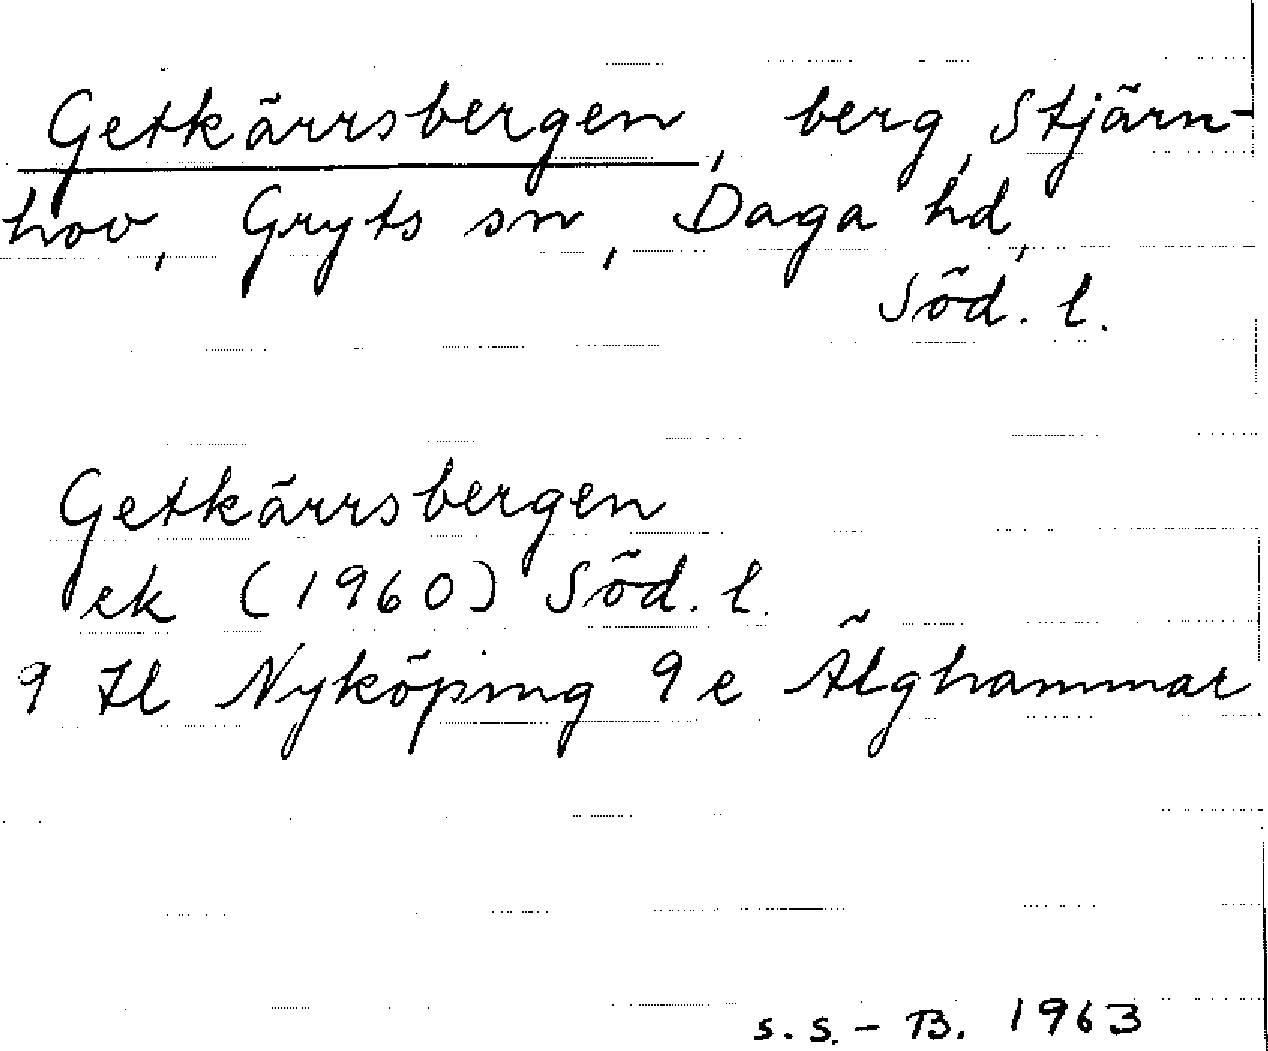 Getkärrsbergen, berg, Stjärn-
hov, Gryts sn, Daga hd,
Söd. l.
Getkärrsbergen
ek (1960) Söd. l.
9 Il Nyköping 9 e Älghammar
s. s. - B. 1963